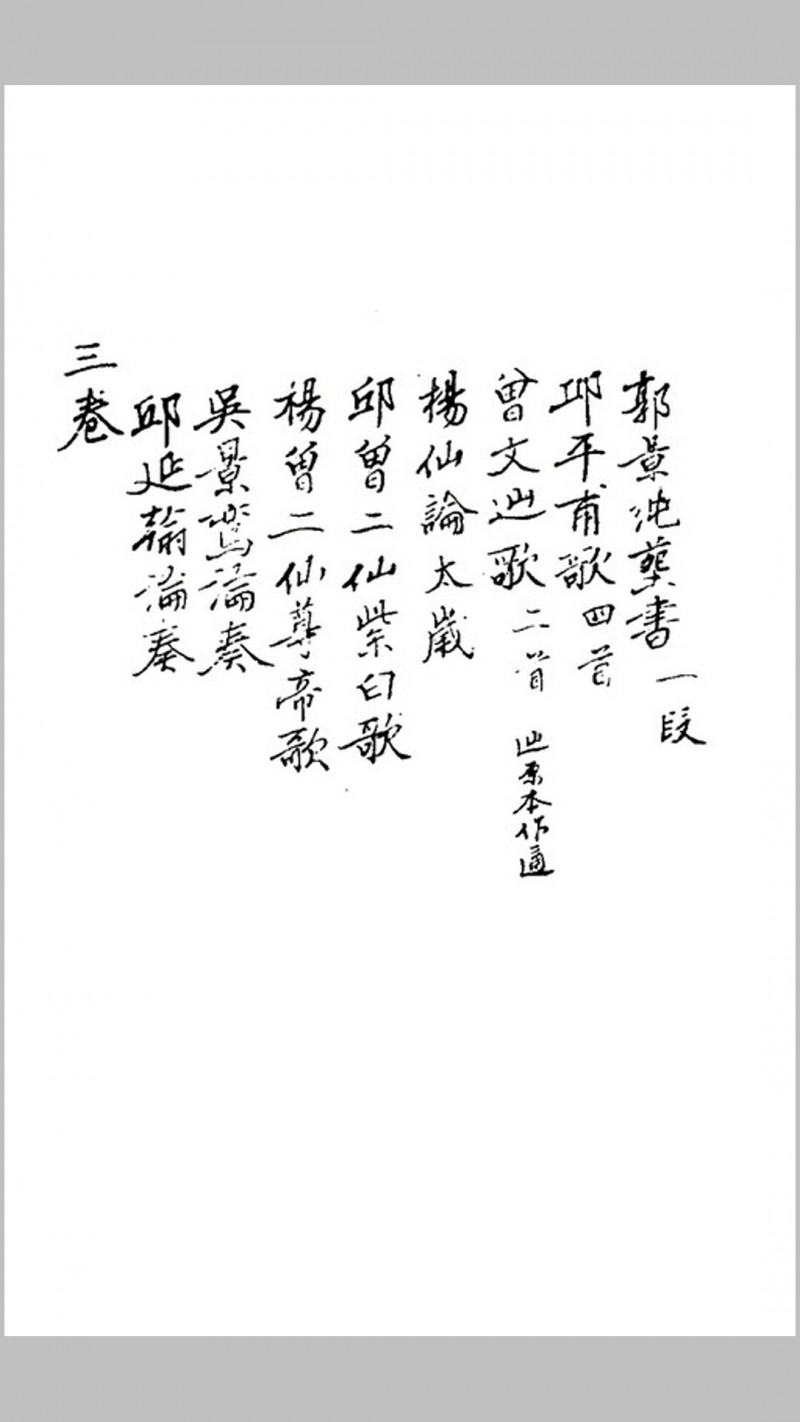 郭景純葬書一段
邱平甫歌四首
曾文辿歌二首 辿原本作遄
楊仙論太歲
邱曾二仙紫白歌
楊曾二仙尊帝歌
吳景鸞論奏
邱延翰論奏
三卷